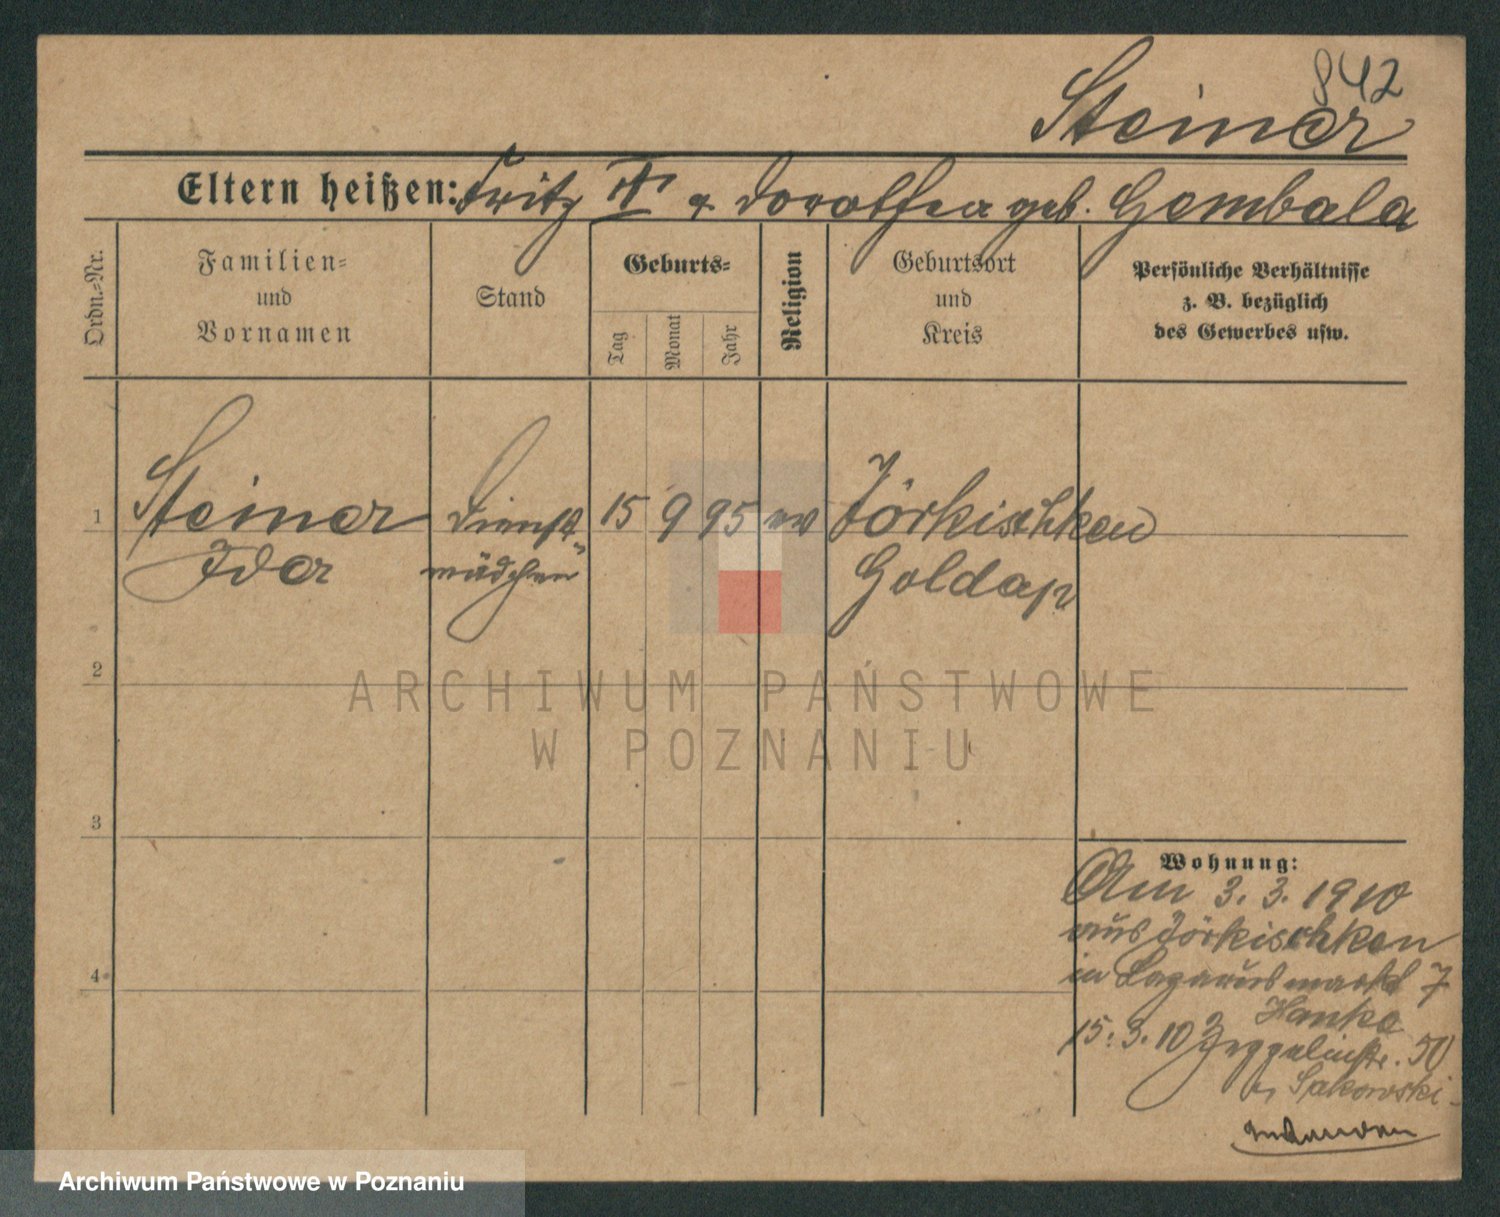 842
Steiner
Eltern heißen: Fritz St & Dorothea geb. Gembala
Ordn.-Nr.
Familien-
und
Vornamen
Stand
Geburts-
Tag
Monat
Jahr
Religion
Geburtsort
und
Kreis
Persönliche Verhältnisse
z. B. bezüglich
des Gewerbes usw.
1
Steiner
Ida
Dienst-
mädchen
15 9 95 ev
Jörkischken
Goldap
2
3
4
Wohnung:
Am 3. 3. 1910
aus Jörkischken
in Lazarusmarkt 7
Hanke
15. 3. 10 Zeppelinstr. 50
Sakowski
ARCHIWUM PAŃSTWOWE
W POZNANIU
Archiwum Państwowe w Poznaniu